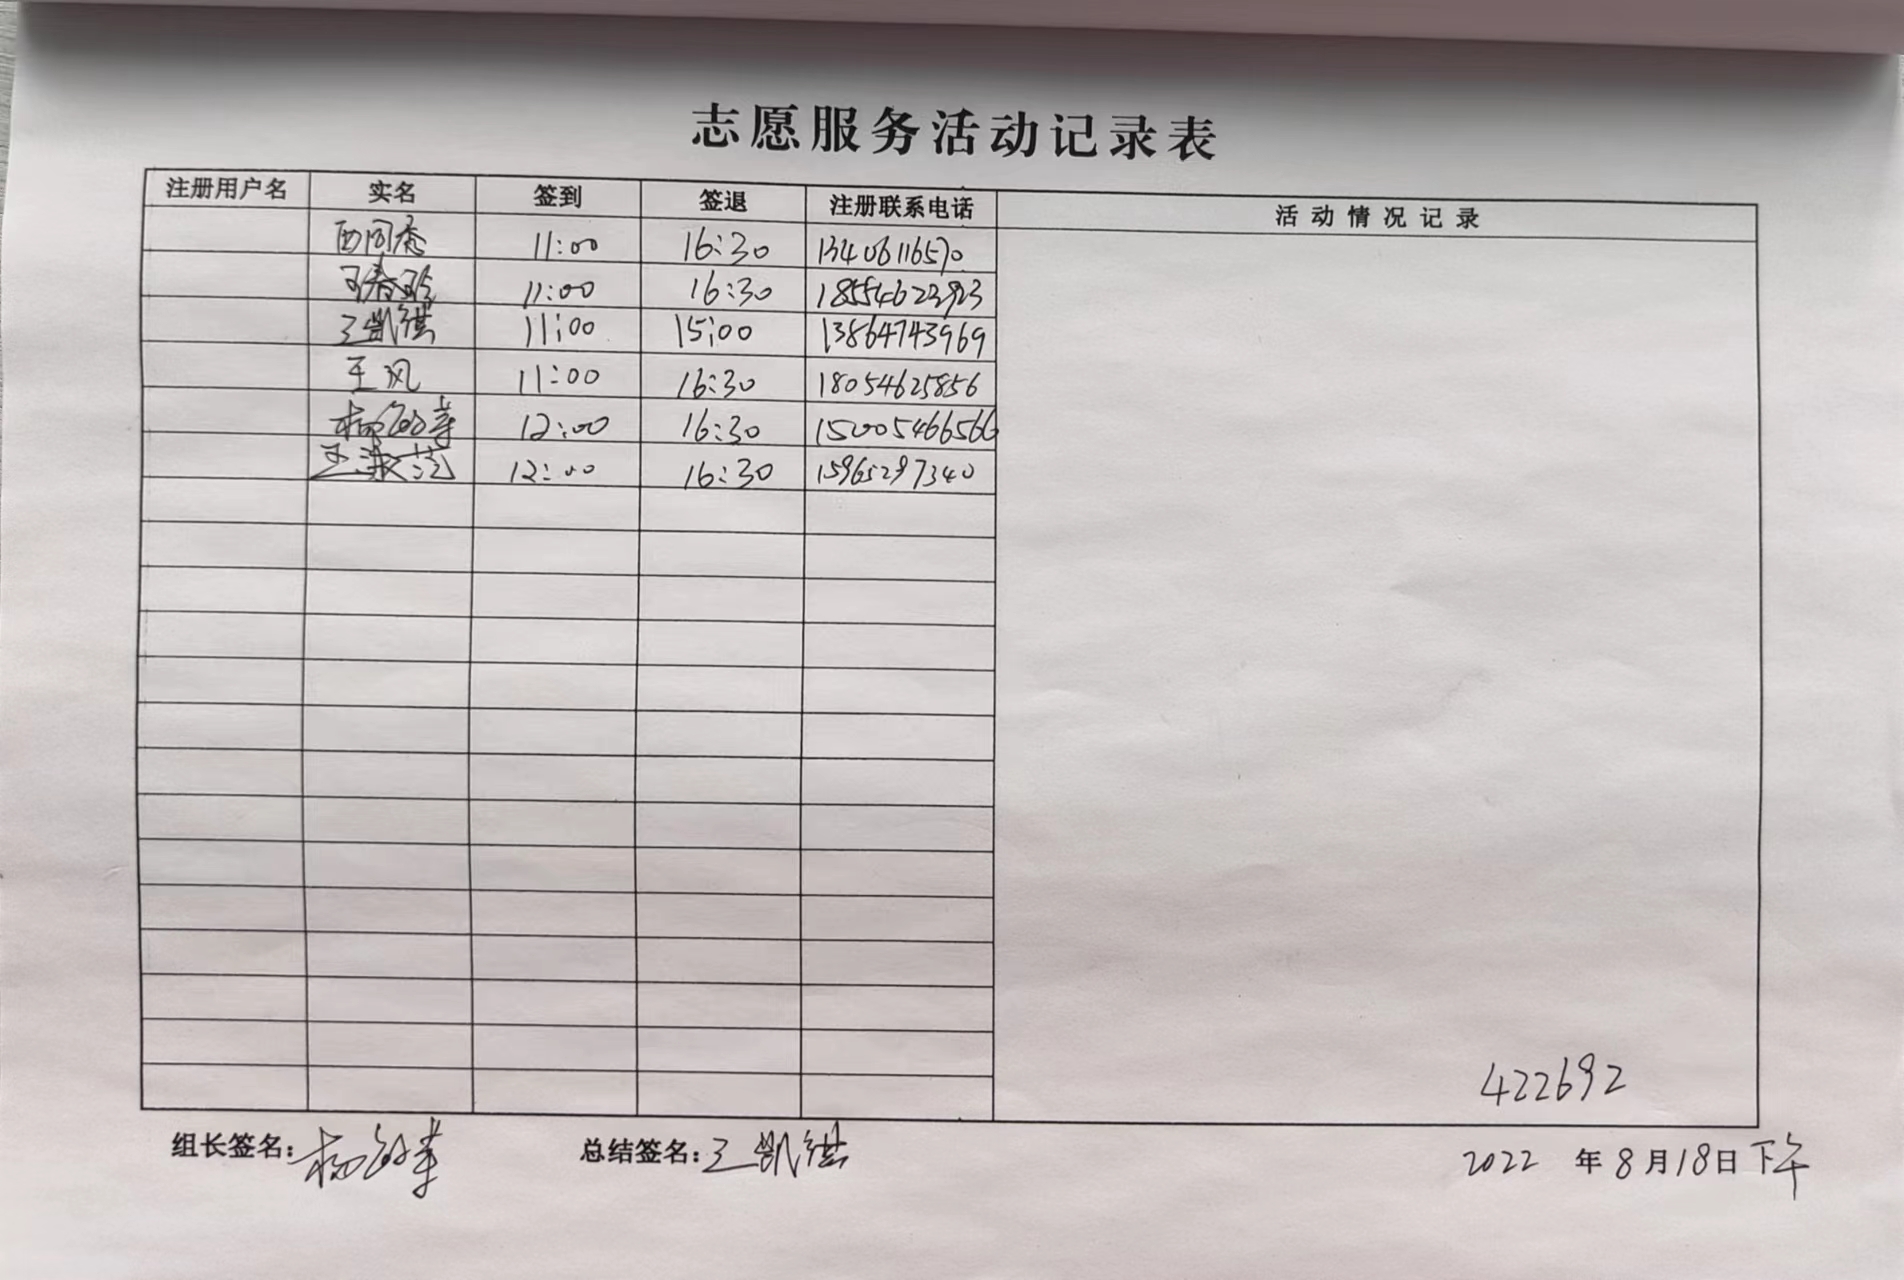 志愿服务活动记录表
注册用户名 实名 签到 签退 注册联系电话 活动情况记录
11:00 16:30 13406116570
王春玲 11:00 16:30 18554623923
王凯祺 11:00 15:00 13864743969
王凤 11:00 16:30 18054625856
12:00 16:30 15005466566
王淑芝 12:00 16:30 15965297340
422692
组长签名: 总结签名:王凯祺 2022 年8月18日下午